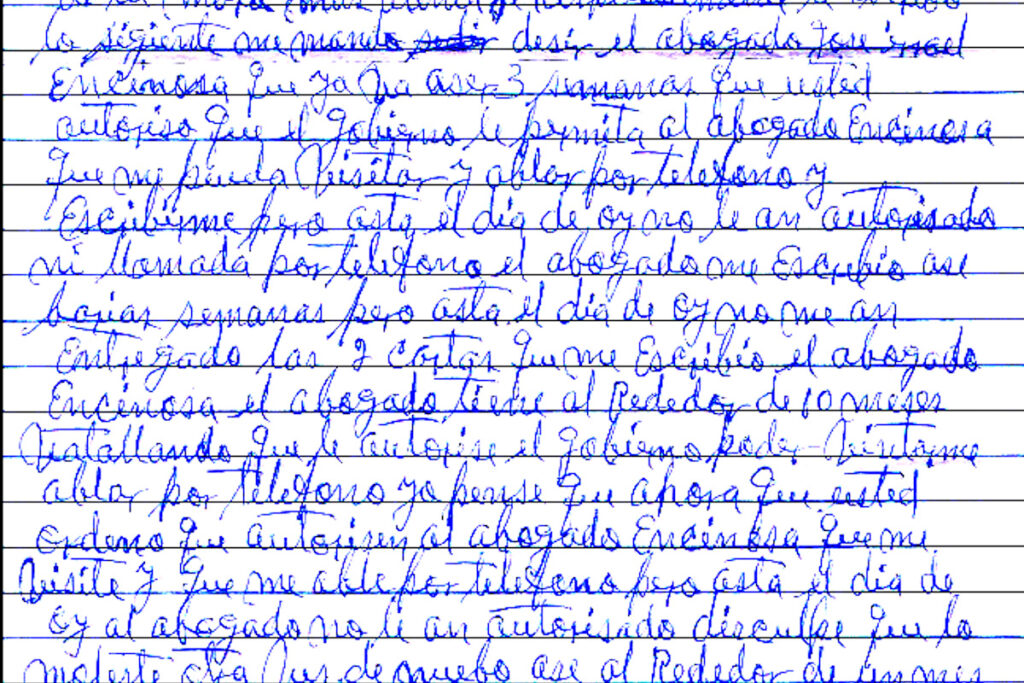 lo sigiente me mando desir el abogado Jose isrrael
Encinosa que ya va aser 3 semanas que usted
autoriso que el gobierno le permita al abogado Encinosa
que me pueda Visitar y ablar por telefono y
Escribirme pero asta el dia de oy no le an autorisado
ni llamada por telefono el abogado me Escribio ase
barias semanas pero asta el dia de oy no me an
Entregado las 2 cartas que me Escribio el abogado
Encinosa el abogado tiene al Rededor de 10 meses
Vatallando que le autorise el gobierno poder Visitarme
ablar por telefono yo pense que ahora que usted
ordeno que autorisen al abogado Encinosa que me
Visite y que me able por telefono pero asta el dia de
oy al abogado no le an autorisado disculpe que lo
moleste otra Vus de nuebo ase al Rededor de un mes